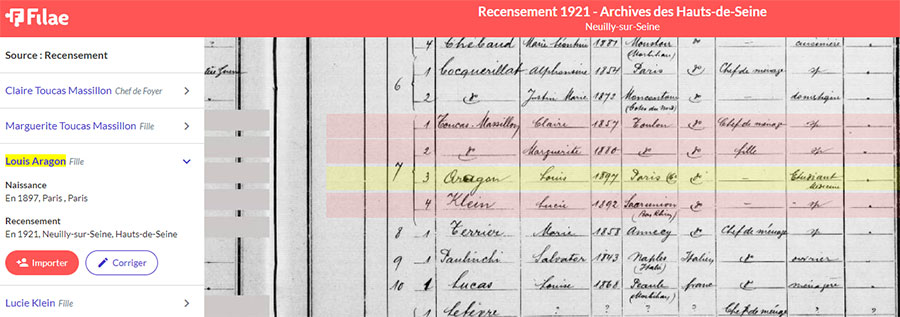 Filae
Recensement 1921 - Archives des Hauts-de-Seine
Neuilly-sur-Seine
Source : Recensement
Claire Toucas Massillon Chef de Foyer
Marguerite Toucas Massillon Fille
Louis Aragon Fille
Naissance
En 1897, Paris , Paris
Recensement
En 1921, Neuilly-sur-Seine, Hauts-de-Seine
Importer
Corriger
Lucie Klein Fille
4 Chebaud Marie 1881 (Morbihan) cuisinière
6 1 Cocquerillat Alphonsine 1854 Paris do Chef de ménage sp
2 do Marie 1872 (Côtes du Nord) do domestique
1 Toucas-Massillon Claire 1857 Toulon do Chef de ménage sp
2 do Marguerite 1880 do do fille sp
7 3 Aragon Louis 1897 Paris do — Etudiant Médecine
4 Klein Lucie 1892 Saarunion (Bas Rhin) do — sp
8 1 Terrier Marie 1858 Annecy do Chef de ménage sp
9 1 Paulinchi Salvater 1843 Naples (Italie) Italien do ouvrier
10 1 Lucas Louise 1860 (Morbihan) franc do ménagère
1 Lefèvre ? ? ? ? Chef de ménage ?